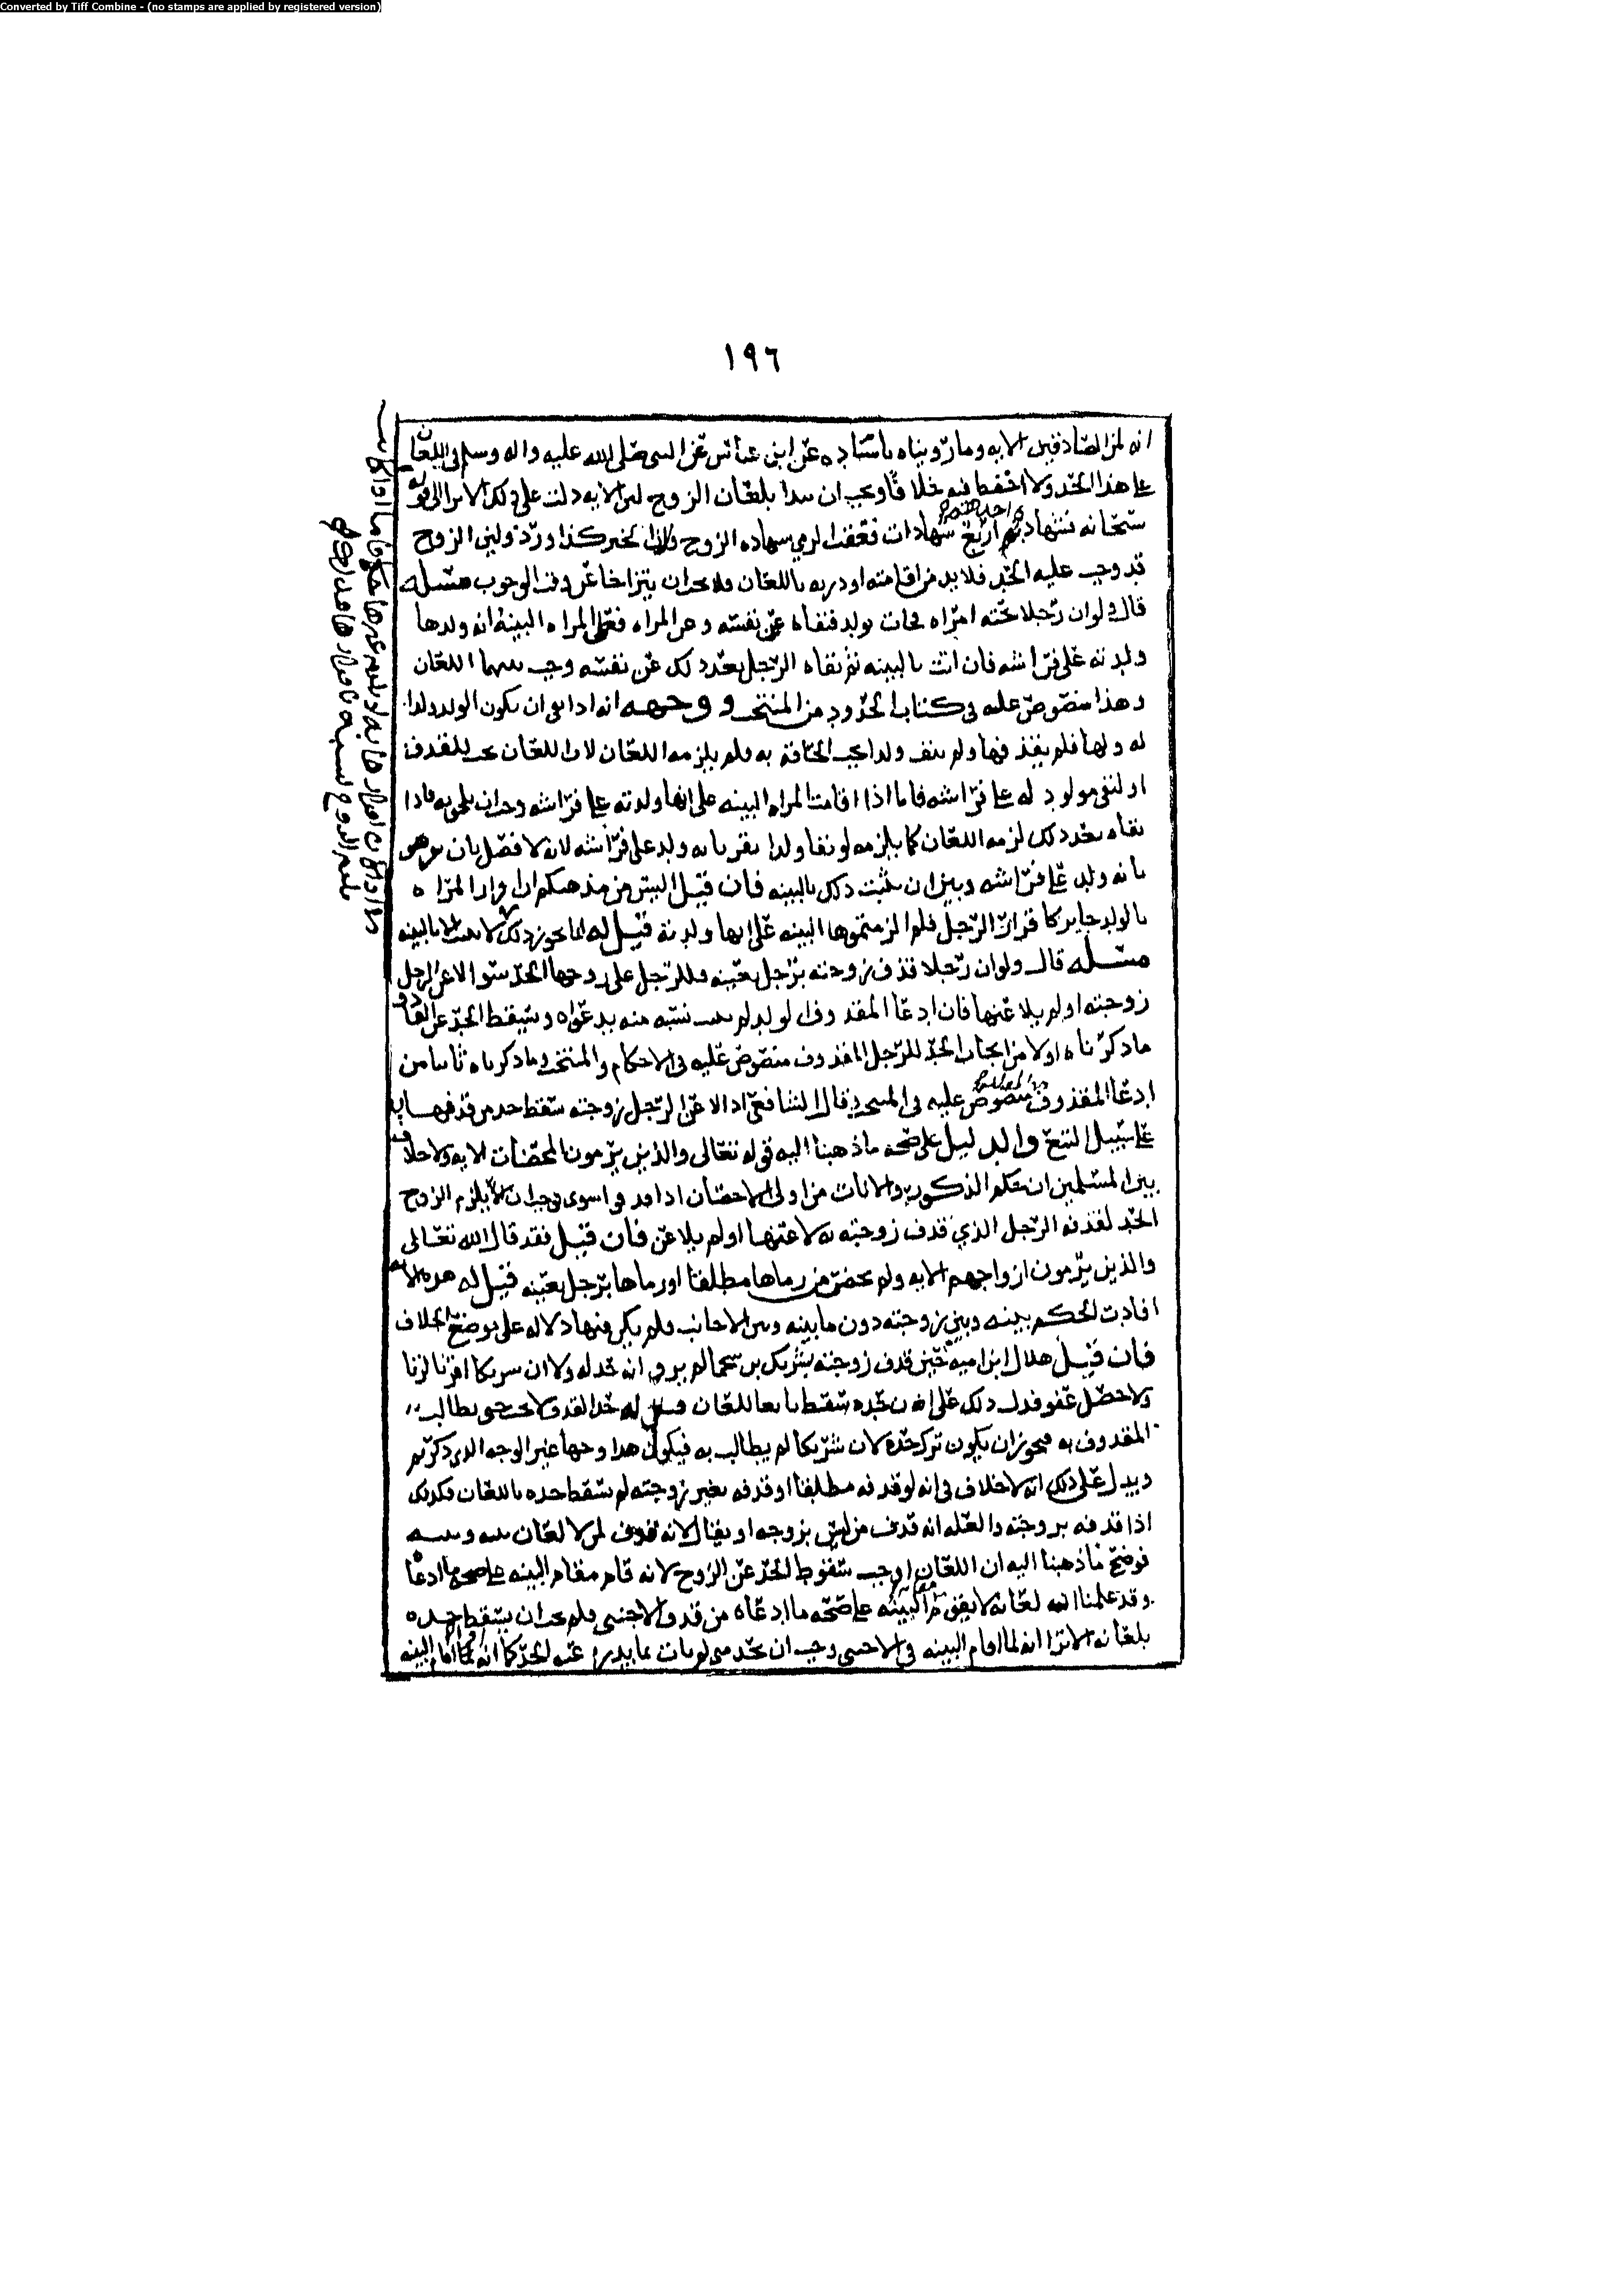 Converted by Tiff Combine - (no stamps are applied by registered version)
١٩٦
انه لمن الصادقين الايه وما رويناه باسناده عن ابن عباس عن النبي صلى الله عليه واله وسلم في اللعان
على هذا الحد ولا احفظ فيه خلافا ويجب ان يبدا بلعان الزوج لان الايه دلت على ذلك الا ترا الى قوله
سبحانه فشهادة احدهم اربع شهادات فعقب الرمي بشهاده الزوج ولان الخبر كذا ورد ولان الزوج
قد وجب عليه الحد فلا بد من اقامته او دريه باللعان ولا يجوز ان يتراخا عن وقت الوجوب مسله
قال ولو ان رجلا تحته امراه فجات بولد فنفاه عن نفسه وعن المراه فعلى المراه البينه انه ولدها
ولدته على فراشه فان اتت بالبينه ثم نفاه الرجل بعد ذلك عن نفسه وجب بينهما اللعان
وهذا منصوص عليه في كتاب الحدود من المنتخب ووجهه انه اذا نفى ان يكون الولد ولدا
له ولها فلم يقذفها ولم ينف ولدا يجب الحاقه به فلم يلزمه اللعان لان اللعان يجب للقذف
او لنفي مولود له على فراشه فاما اذا اقامت المراه البينه على انها ولدته على فراشه وجب ان يلحق به فاذا
نفاه بعد ذلك لزمه اللعان كما يلزمه لو نفا ولدا يقر بانه ولد على فراشه لانه لا فصل بان يقر هو
بانه ولد على فراشه وبين ان يثبت ذلك بالبينه فان قيل اليس من مذهبكم ان اقرار المراه
بالولد جايز كاقرار الرجل فلم الزمتموها البينه على انها ولدته قيل له انما يجوز ذلك لا يثبت الا بالبينه
مسله قال ولو ان رجلا قذف زوجته برجل بعينه فللرجل على زوجها الحد سوا لاعن الرجل
زوجته او لم يلاعنها فان ادعا المقذوف الولد لم يثبت نسبه منه بدعواه وسقط الحد عن القاذف
ما ذكرناه اولا من ايجاب الحد للرجل المقذوف منصوص عليه في الاحكام والمنتخب وما ذكرناه ثانيا من
ادعا المقذوف منصوص عليه في المنتخب وقال الشافعي اذا لاعن الرجل زوجته سقط حد من قذفها به
على سبيل التبع والدليل على صحه ما ذهبنا اليه قوله تعالى والذين يرمون المحصنات الايه ولا خلاف
بين المسلمين ان حكم الذكور والاناث من اولي الاحصان اذا قذفوا سوى فوجب ان يلزم الزوج
الحد لقذفه الرجل الذي قذف زوجته به لاعنها او لم يلاعن فان قيل فقد قال الله تعالى
والذين يرمون ازواجهم الايه ولم يخص من رماها مطلقا او رماها برجل بعينه قيل له هذه الايه
افادت الحكم بينه وبين زوجته دون ما بينه وبين الاجانب فلم يكن فيها دلاله على موضع الخلاف
فان قيل هلال ابن اميه حين قذف زوجته بشريك بن سحما لم يرو انه حد له ولا ان شريكا اقر بالزنا
ولا حصل عفو فدل ذلك على ان حده سقط تابعا للعان قيل له حد القذف لا يجب حتى يطالب
المقذوف به فيجوز ان يكون ترك حده لان شريكا لم يطالب به فيكون هذا وجها غير الوجه الذي ذكرتم
ويدل على ذلك انه لا خلاف في انه لو قذفه مطلقا او قذفه بغير زوجته لم يسقط حده باللعان فكذلك
اذا قذفه بزوجته والعله انه قذف من ليس بزوجه او يقال لانه قذف لمن لا لعان بينه وبينه
فوضح ما ذهبنا اليه ان اللعان اوجب سقوط الحد عن الزوج لانه قام مقام البينه على صحه ما ادعا
وقد علمنا انه لعانه لا يقوم مقام البينه على صحه ما ادعاه من قذف الاجنبي فلم يجب ان يسقط حده
بلعانه الا ترا انه لما اقام البينه في الاجنبي وجب ان يحد متى لم يات بما يدرا عنه الحد كما انه لما اقام البينه